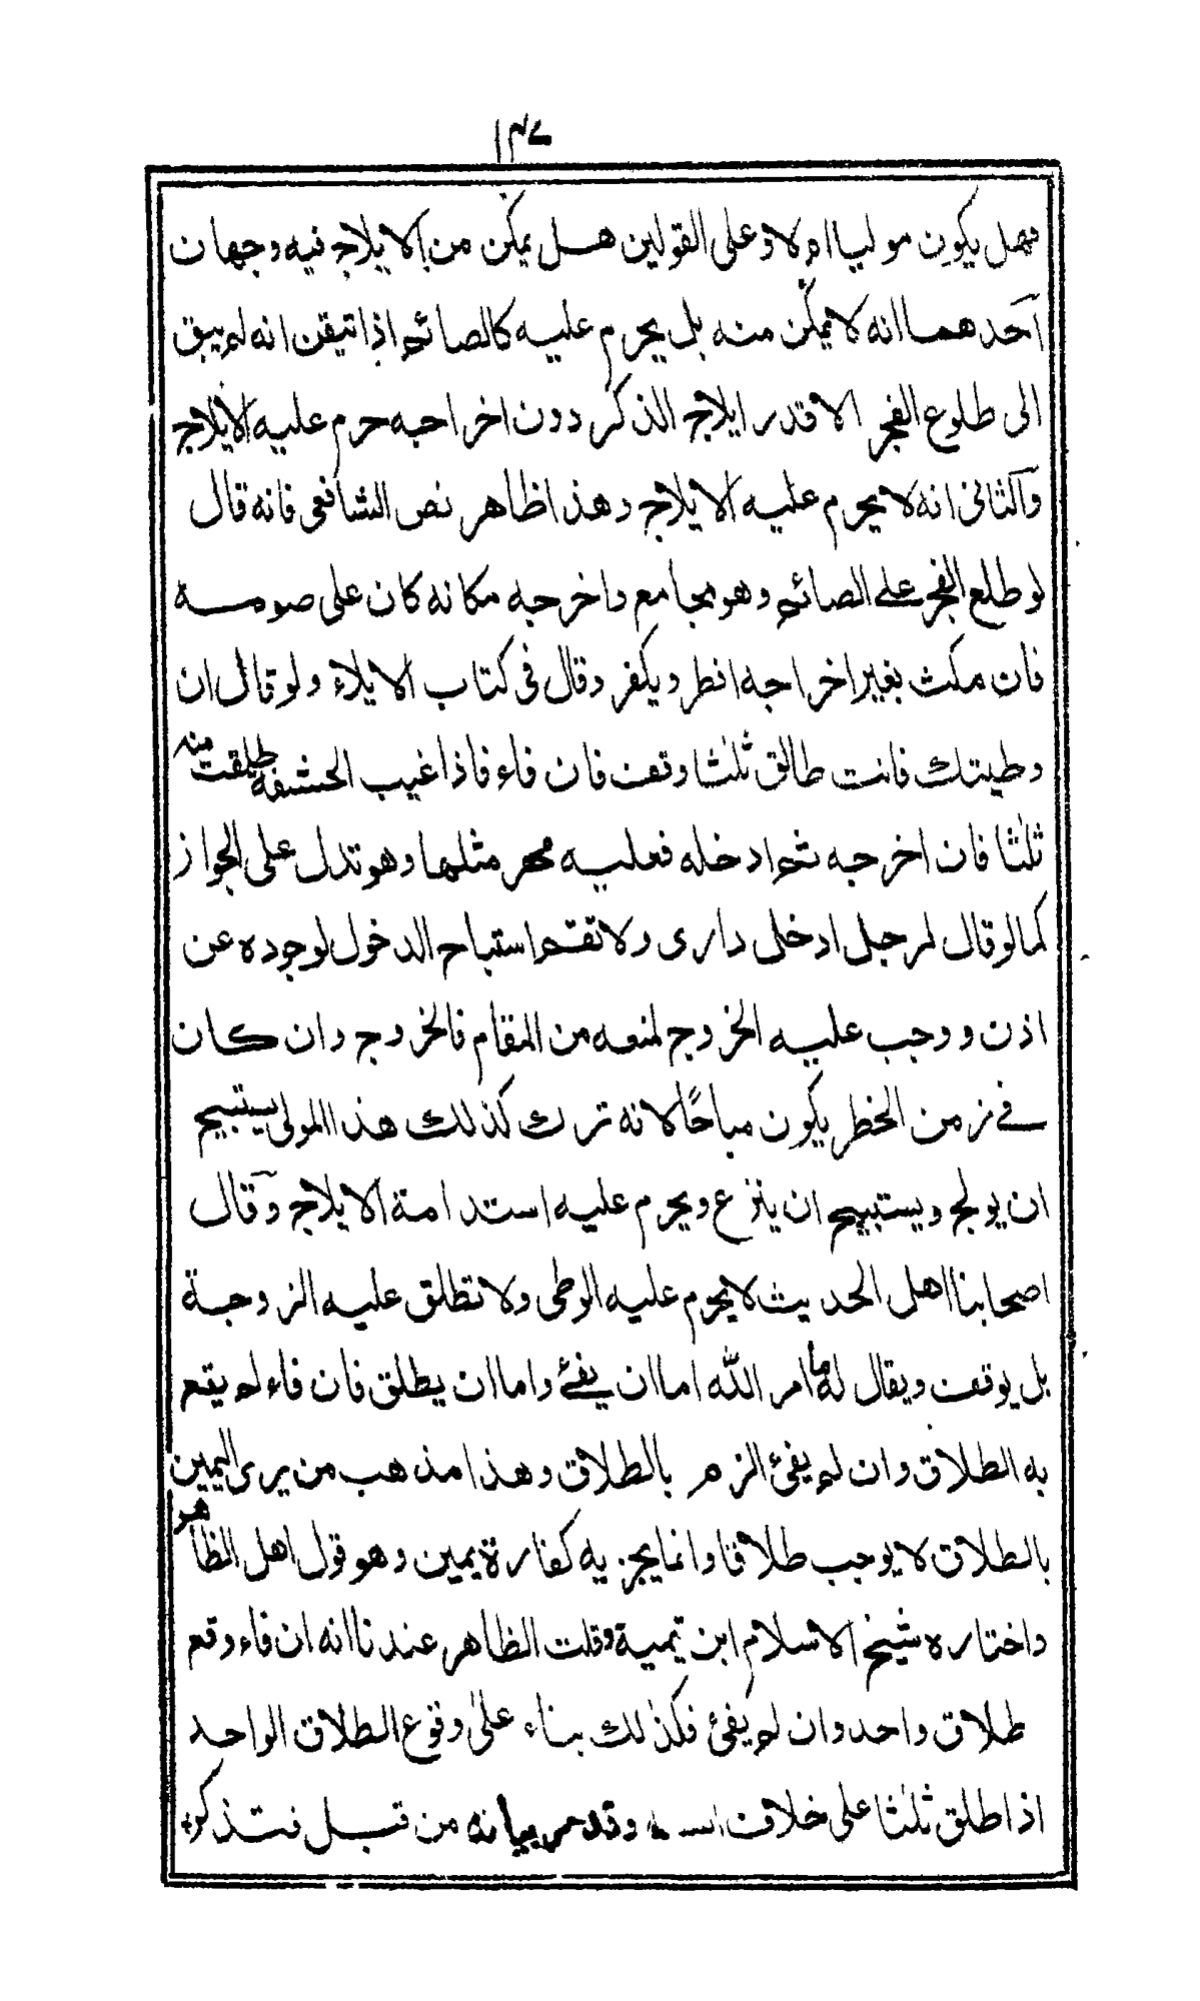 ١٣٧
فهل يكون موليا ام لا وعلى القولين هل يمكن من الايلاج فيه وجهان
احدهما انه لا يمكن منه بل يحرم عليه كالصائم اذا تيقن انه لم يبق
الى طلوع الفجر الا قدر ايلاج الذكر دون اخراجه حرم عليه الايلاج
والثانى انه لا يحرم عليه الايلاج وهذا ظاهر نص الشافعى فانه قال
لو طلع الفجر على الصائم وهو مجامع واخرجه مكانه كان على صومه
فان مكث بغير اخراجه افطر ويكفر وقال فى كتاب الايلاء ولو قال ان
وطيتك فانت طالق ثلثا وقف فان فاء فاذا غيب الحشفة طلقت منه
ثلثا فان اخرجه ثم ادخله فعليه مهر مثلها وهو تدل على الجواز
كما لو قال لرجل ادخل دارى ولا تقم استباح الدخول لوجوده عن
اذن ووجب عليه الخروج لمنعه من المقام فالخروج وان كان
فے زمن الخطر يكون مباحًا لانه ترك كذلك هذا المولى يستبيح
ان يولج ويستبيح ان ينزع ويحرم عليه استدامة الايلاج وقال
اصحابنا اهل الحديث لا يحرم عليه الوطى ولا تطلق عليه الزوجة
بل يوقف ويقال له ما امر الله اما ان يفئ واما ان يطلق فان فاء لم يقع
به الطلاق وان لم يفئ الزم بالطلاق وهذا مذهب من يرى اليمين
بالطلاق لا يوجب طلاقا وانما يجزيه كفارة يمين وهو قول اهل الظاهر
واختاره شيخ الاسلام ابن تيمية وقلت الظاهر عندنا انه ان فاء وقع
طلاق واحد وان لم يفئ فكذلك بناء على وقوع الطلاق الواحد
اذا طلق ثلثا على خلاف وقد مر بيانه من قبل فتذكره